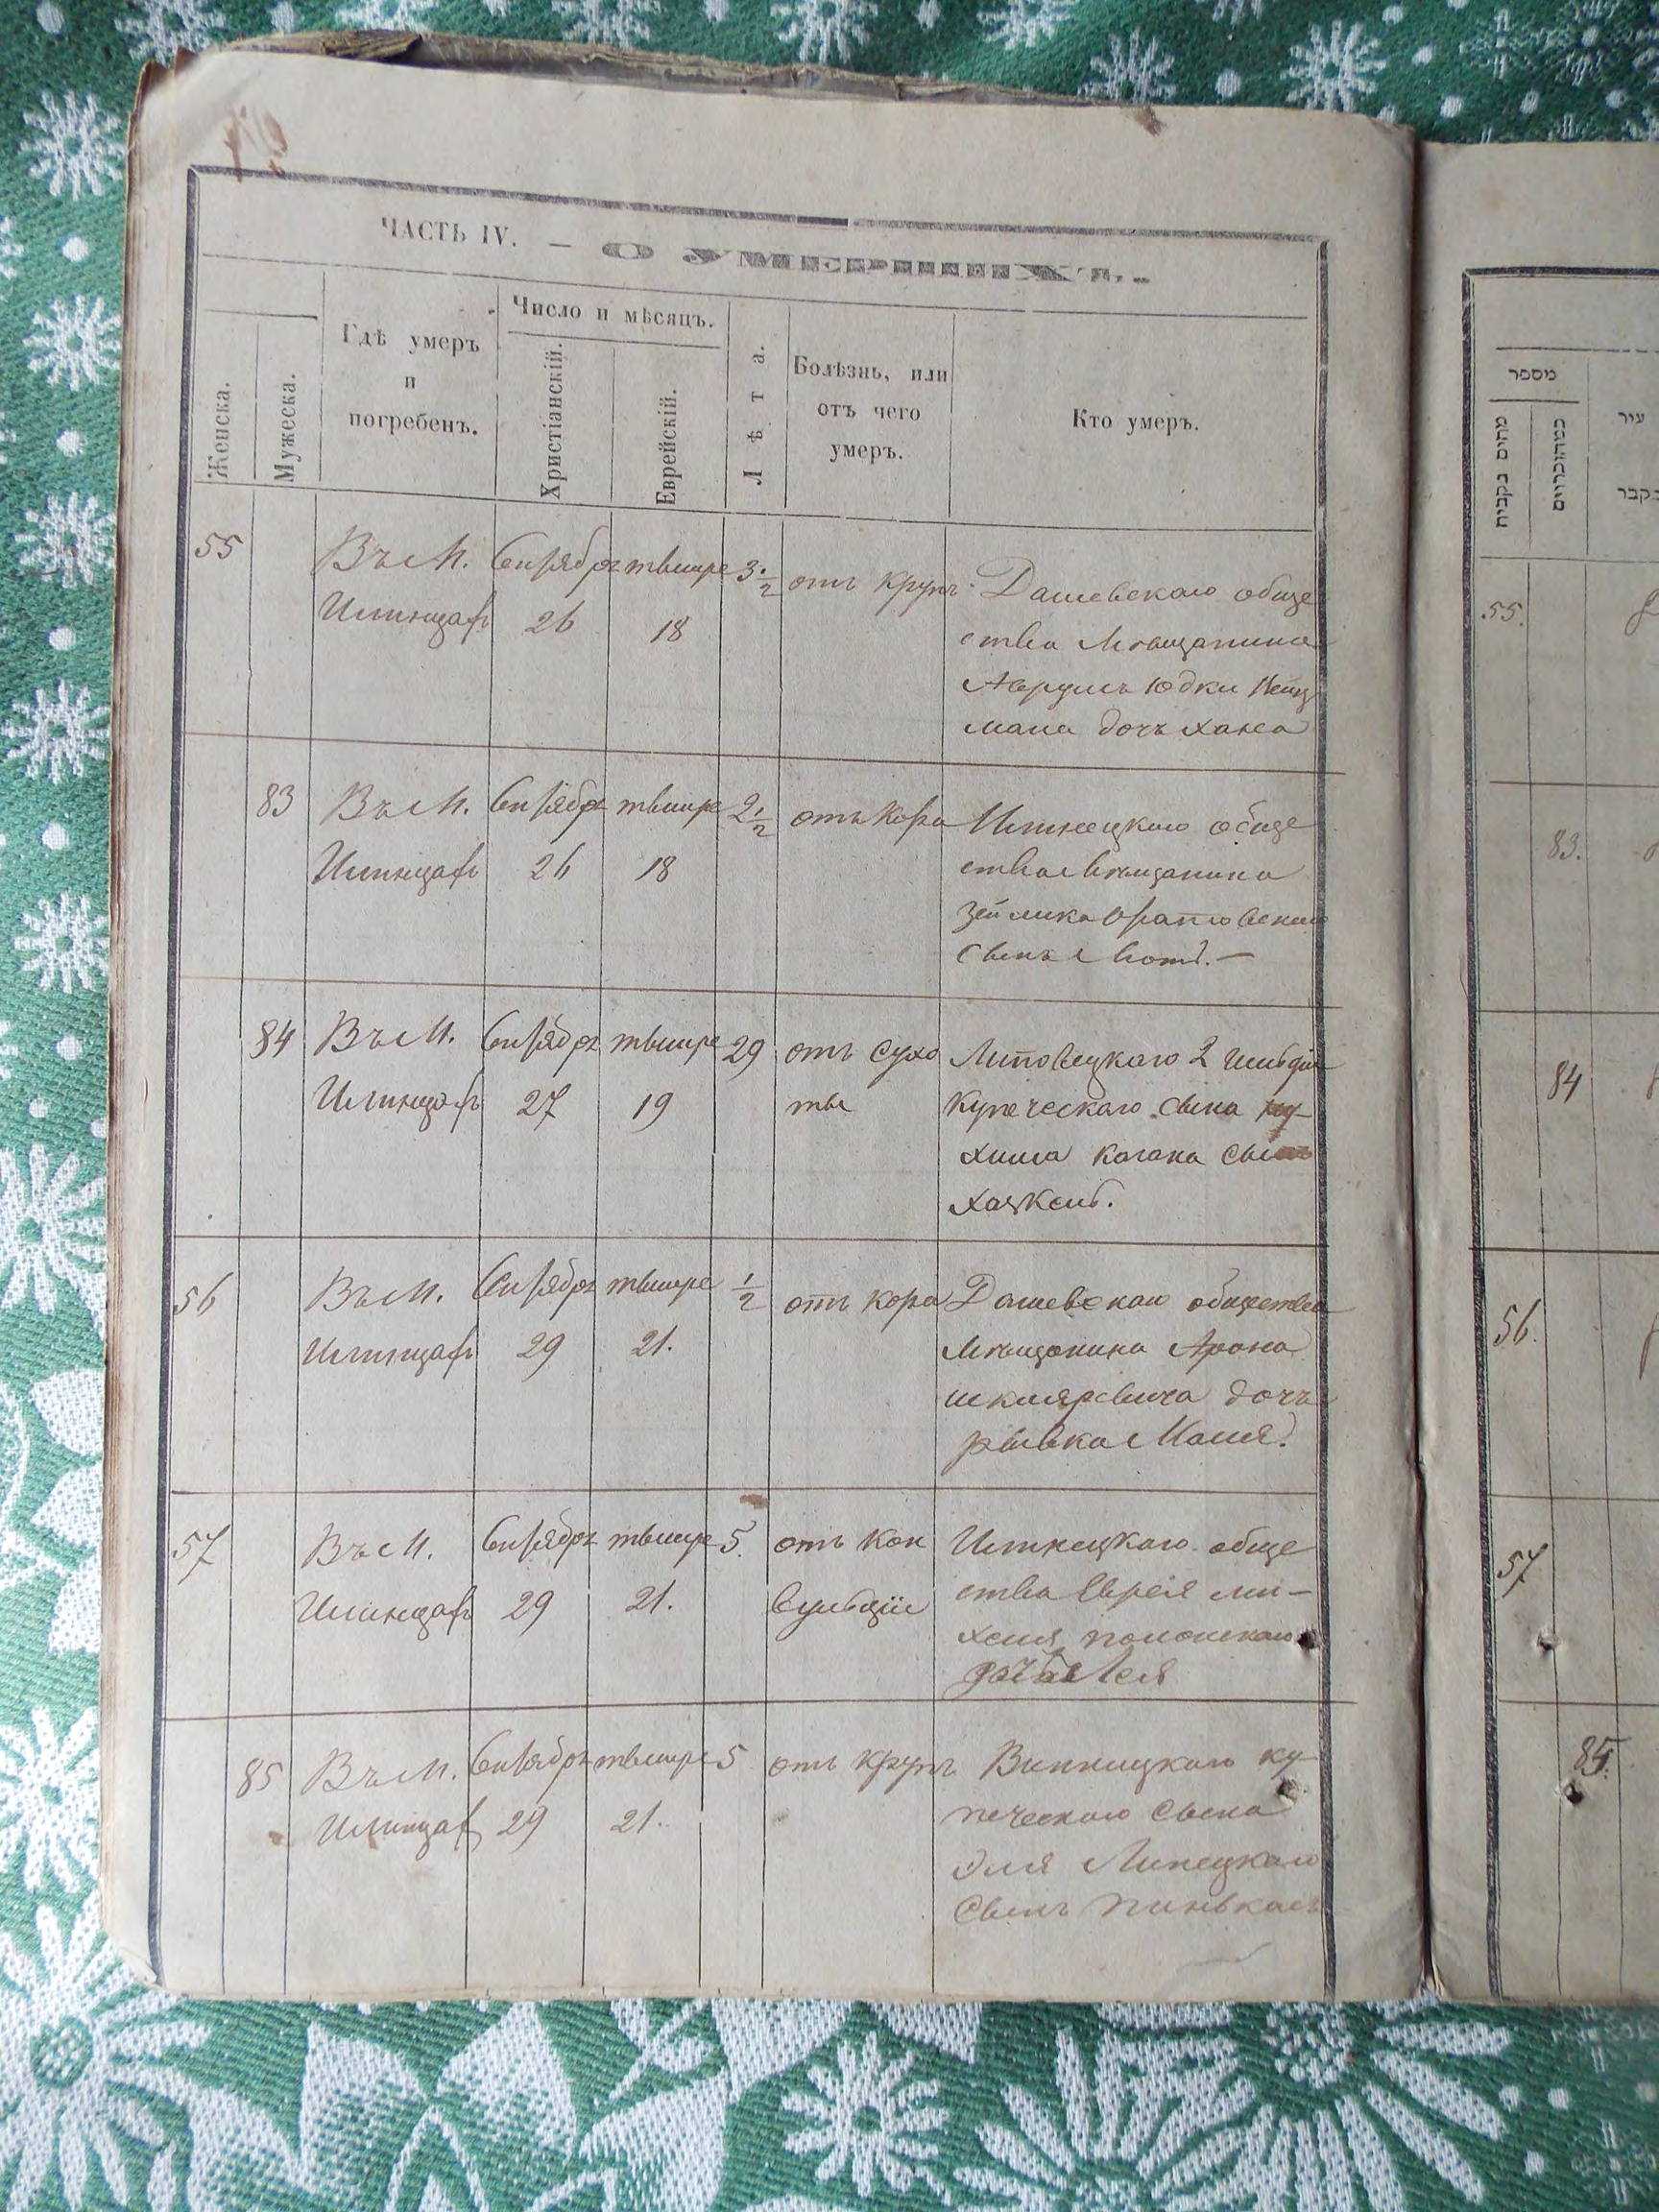 ЧАСТЬ IV. — О УМЕРШИХЪ.
Женска.
Мужеска.
Гдѣ умеръ
и
погребенъ.
Число и мѣсяцъ.
Христіанскій.
Еврейскій.
Лѣта.
Болѣзнь, или
отъ чего
умеръ.
Кто умеръ.
55
Въ М.
Илинцахъ
Сентября
26
тышре
18
3 1/2
отъ крупъ
Дашевскаго обще
ства Мѣщанина
Аврумъ Юдки
мана дочь Ханса
83
Въ М.
Илинцахъ
Сентября
26
тышре
18
2 1/2
отъ кора
Илинецкаго обще
ства Мѣщанина
Зейлика Оратовскаго
сынъ
84
Въ М.
Илинцахъ
Сентября
27
тышре
19
29
отъ сухо
ты
Липовецкаго 2 гильдіи
купеческаго сына
Когана сынъ
Хацкель.
56
Въ М.
Илинцахъ
Сентября
29
тышре
21.
1/2
отъ кора
Дашевскаго общества
Мѣщанина Арона
шкляревича дочь
рывка Маля.
57
Въ М.
Илинцахъ
Сентября
29
тышре
21.
5.
отъ кон
вульціи
Илинецкаго обще
ства Еврея ми-
хеля полонскаго
дочь Лея
85
Въ М.
Илинцахъ
Сентября
29
тышре
21.
5
отъ крупъ
Винницкаго ку-
печескаго сына
Эля Липецкаго
сынъ пинькасъ
מספר
עיר
קבר
55.
83.
84
56.
57
85.